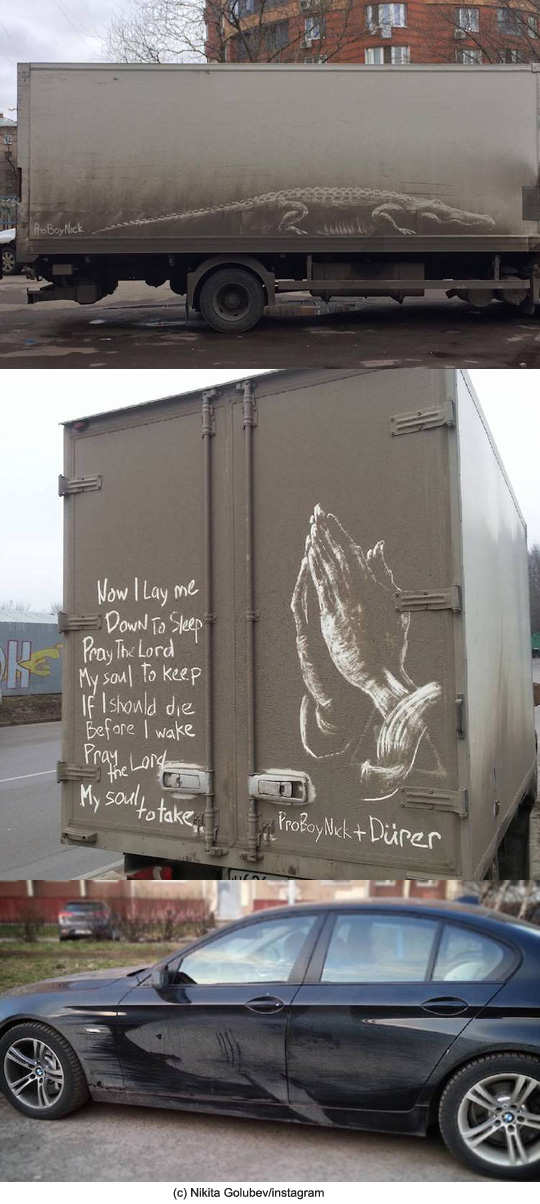 ProBoyNick
Now I Lay me
Down To Sleep
Pray The Lord
My soul To keep
If I should die
Before I wake
Pray
the Lord
My soul
to take
ProBoyNick + Dürer
(c) Nikita Golubev/instagram